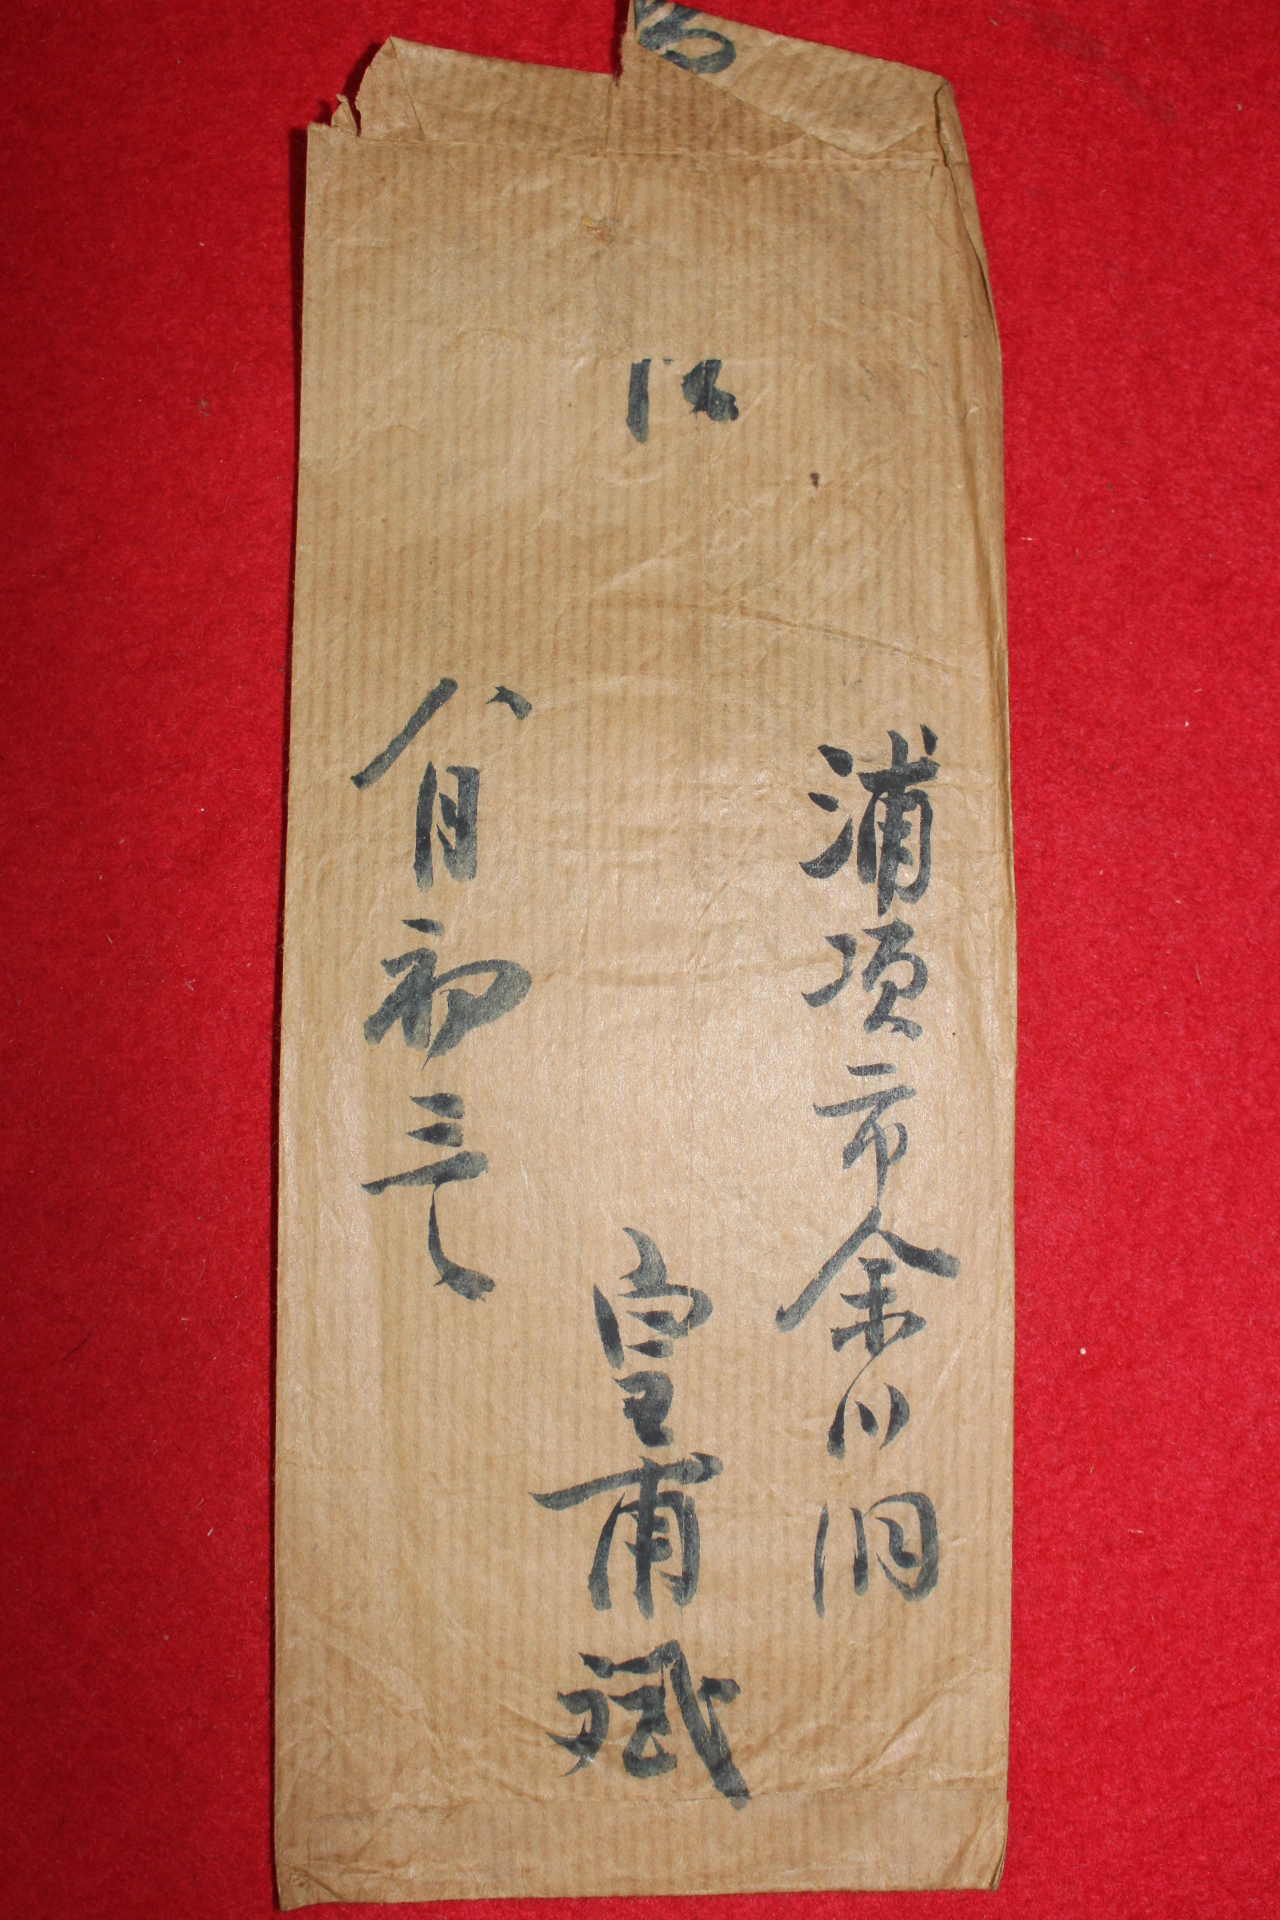 浦項市余川洞
皇甫斌
八月初三日